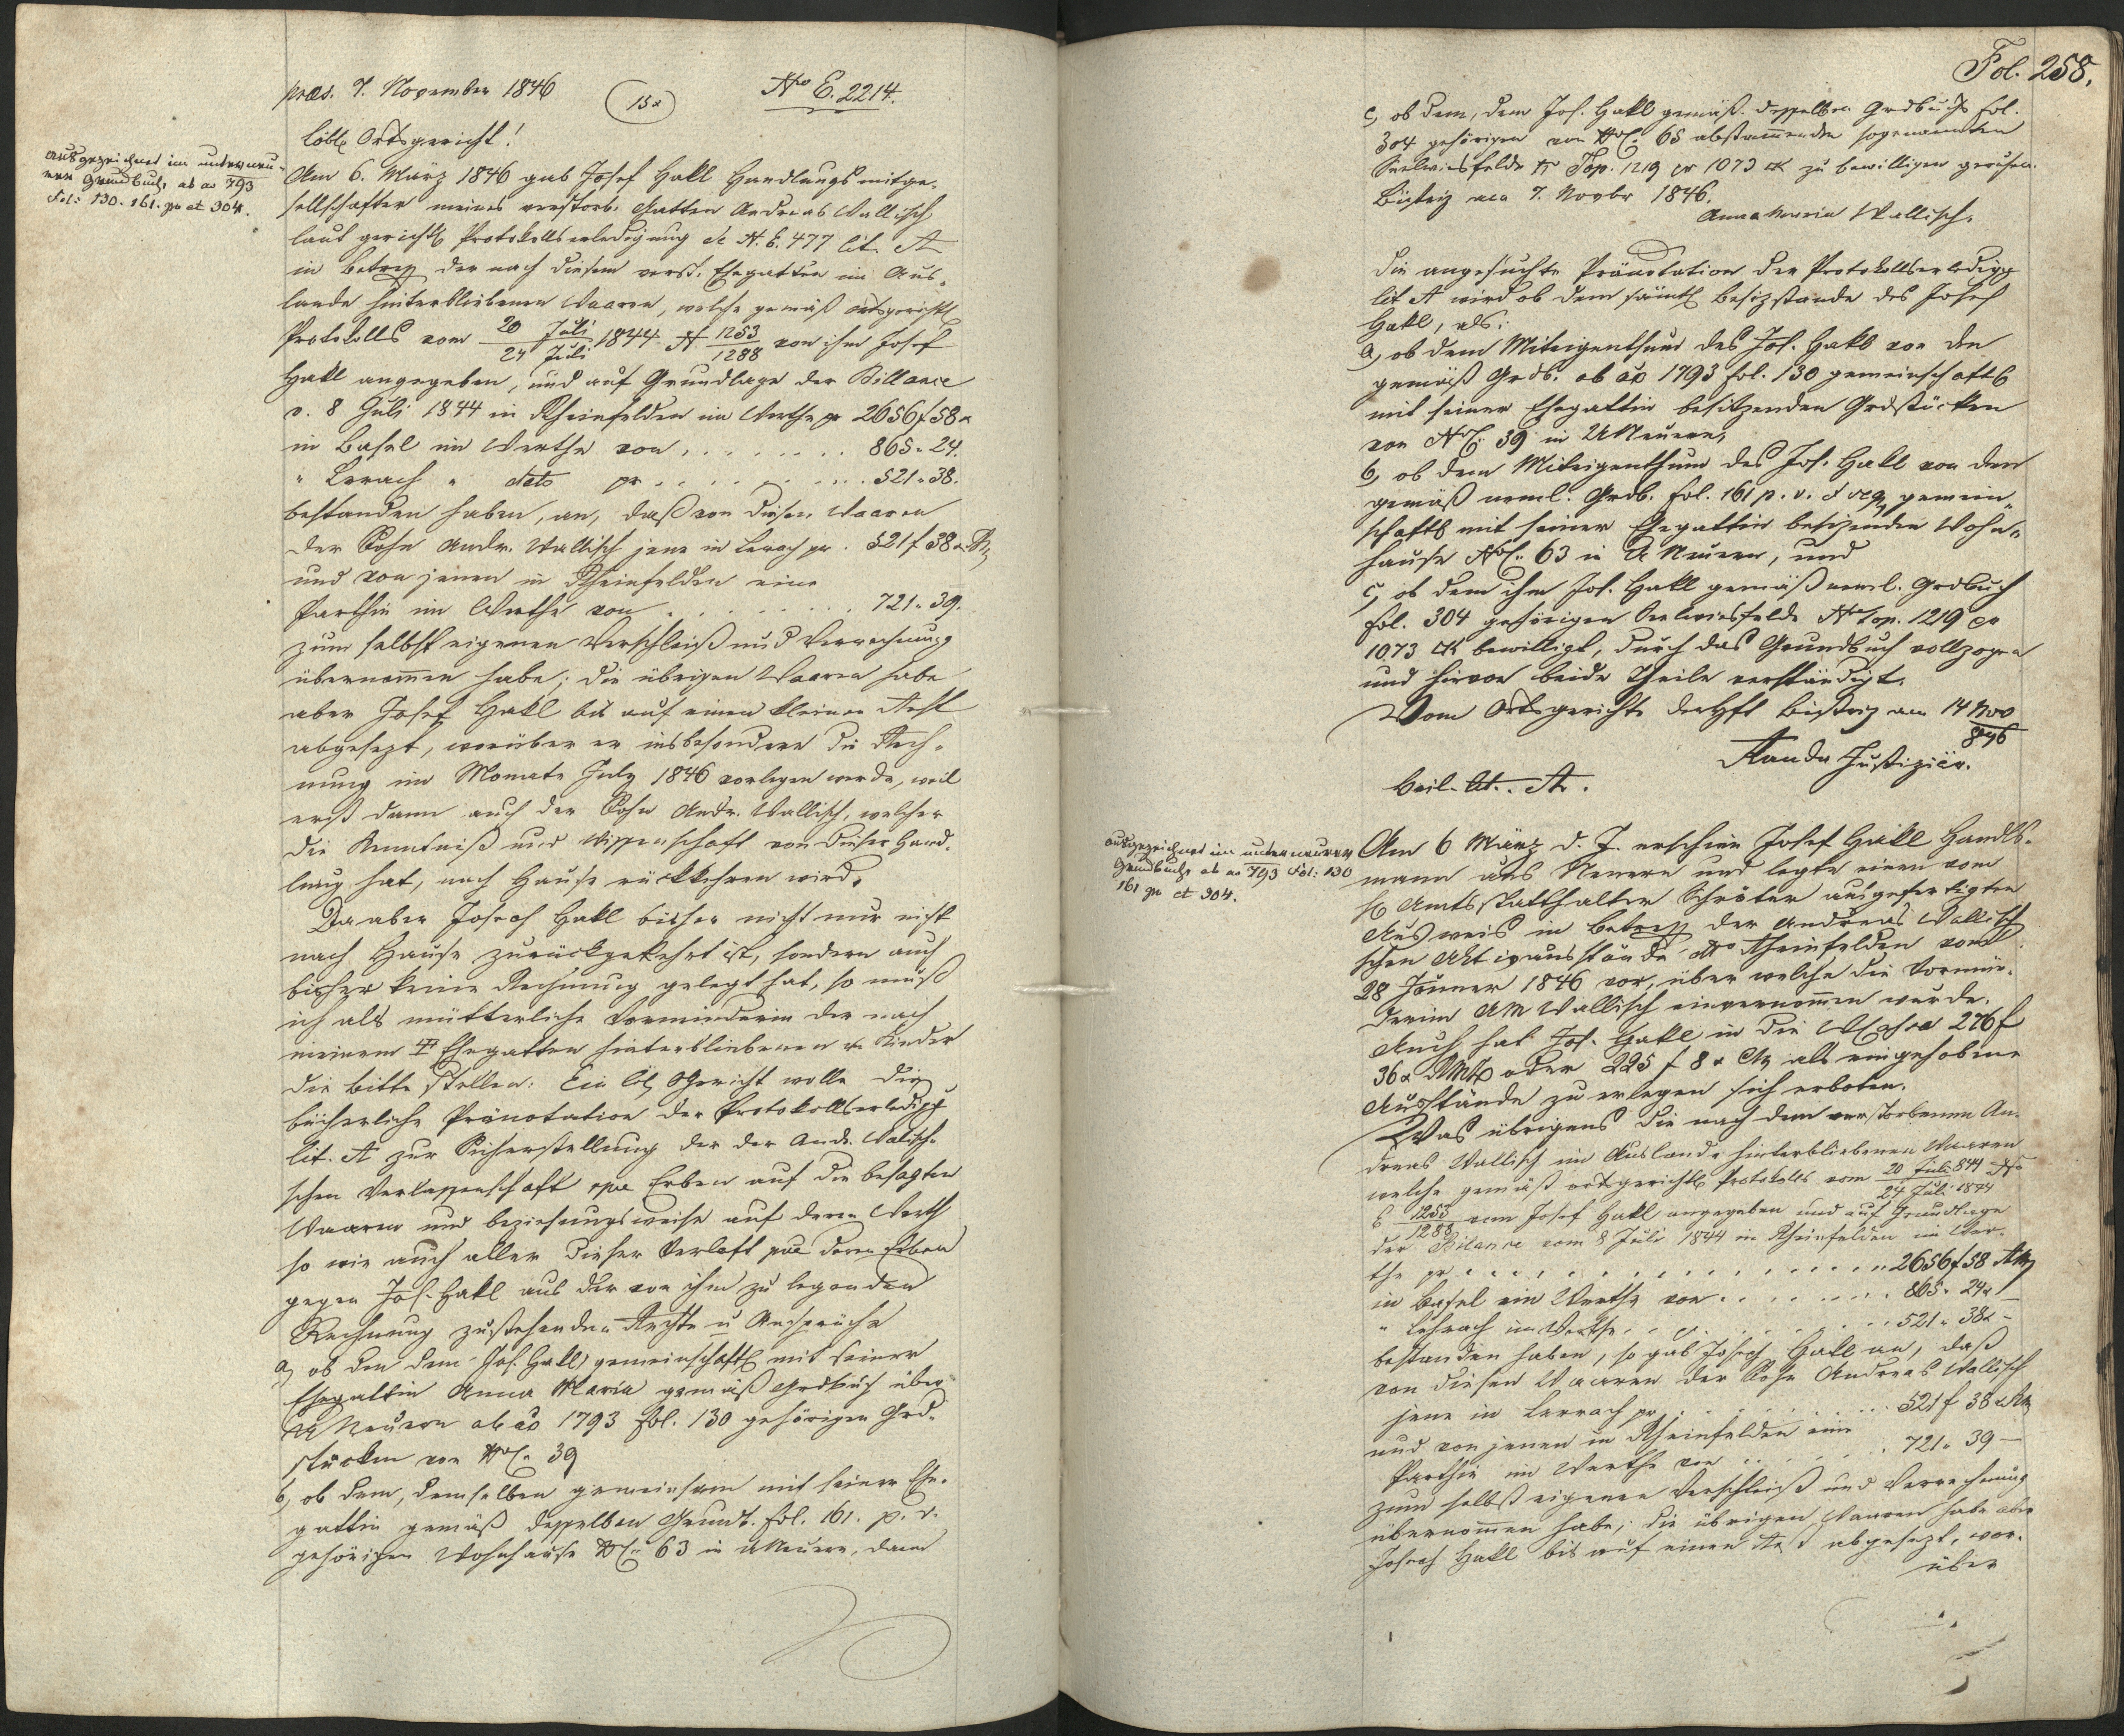 præs. 7. November 1846
15x
Nro E. 2214.
löbl. Ortsgericht!
ausgezeichnet im unterneu-
ern Grundbuch ab ao 793
Fol: 130. 161. pv et 304.
Am 6. März 1846 gab Josef Hakl Handlungsmitge-
sellschafter meines verstorb. Gatten Andreas Wallisch
laut gerichtl. Protokollserledigung de N. E. 477 lit. A
in Betreff der nach diesem verst. Ehegatten im Aus-
lande hinterbliebenen Waaren, welche gemäß ortsgerichtl.
Protokolls vom 20 Juli / 24 Juli 1844 N. 1253 / 1288 von ihm Josef
Hakl angegeben, und auf Grundlage der Billance
v. 8 Juli 1844 in Rheinfelden im Werthe pr 2656 f 58 x
in Basel im Werthe von . . . . . . . 865 " 24.
" Lerach " dato pr . . . . . . . 521 " 38.
bestanden haben, an, daß von diesen Waaren
der Sohn Andr. Wallisch jene in Lerach pr . 521 f 38 x
und von jenen in Rheinfelden eine
Parthie im Werthe von . . . . . . . 721 " 39.
zum selbst eigenen Verschleiß und Verrechnung
übernommen habe; die übrigen Waaren habe
aber Josef Hakl bis auf einen kleinen Rest
abgesezt, worüber er insbesondere die Rech-
nung im Monate July 1846 vorlegen werde, weil
erst dann auch der Sohn Andr. Wallisch, welcher
die Kenntniß und Wissenschaft von dieser Hand-
lung hat, nach Hause rückkehren wird.
Da aber Joseph Hakl bisher nicht nur nicht
nach Hause zurückgekehrt ist, sondern auch
bisher keine Rechnung gelegt hat, so muß
ich als mütterliche Vormünderin der nach
meinem Ehegatten hinterbliebenen Kinder
die Bitte stellen: Ein löbl. Gericht wolle die
bücherliche Pränotation der Protokollserledigg
lit. A zur Sicherstellung der der Andr. Wallisch-
schen Verlassenschaft Erben auf die besagten
Waaren und beziehungsweise auf deren Werth
so wie auch aller dieser Verlaft deren Erben
gegen Jos. Hakl aus der von ihm zu legenden
Rechnung zustehenden Rechte u Ansprüche
a, ob den dem Jos. Hakl gemeinschaftl. mit seiner
Ehegattin Anna Maria gemäß Grdbuch über
U Neuern ab ao 1793 fol. 130 gehörigen Grd-
stücken von NC. 39
b, ob dem, demselben gemeinsam mit seiner Ehe-
gattin gemäß desselben Grundb. fol. 161. p. v.
gehörigen Wohnhause NC. 63 in UNeuern, dann
Fol. 258.
c, ob dem, dem Jos. Hakl gemäß desselben Grdbuchs fol.
304 gehörigen von NC. 65 abstammenden sogenannten
felde N Top. 1219 pr 1073 zu bewilligen geruhen.
Bistriz am 7. Novbr 1846.
Anna Maria Wallisch.
Die angesuchte Pränotation der Protokollserledigg
lit A wird ob dem sämtl. Besizstande des Josef
Hakl, als:
a, ob dem Miteigenthum des Jos. Hakl von den
gemäß Grdb. ab ao 1793 fol. 130 gemeinschaftl.
mit seiner Ehegattin besitzenden Grdstücken
von NC. 39 in UNeuern,
b, ob dem Miteigenthum des Jos. Hakl von dem
gemäß neml. Grdb. fol. 161 p. v. gemein-
schaftl. mit seiner Ehegattin besizenden Wohn-
hause NC. 63 in U Neuern, und
c, ob dem ihm Jos. Hakl gemäß neml. Grdbuch
fol. 304 gehörigen felde Nro top. 1219 pr
1073 bewilligt, durch das Grundbuch vollzogen
und hievon beide Theile verständigt.
Vom Ortsgerichte der Hft Bistriz am 14 Nov
846
Randa Justiziär.
Beil. lit. A.
ausgezeichnet im unterneuern
Grundbuch ab ao 793 Fol: 130
161 pv et 304.
Am 6 März d. J. erschien Josef Hakl Handls-
mann aus Neuern und legte einen vom
H. Amtsstatthalter Schröter ausgefertigten
Ausweis in Betreff der Andreas Wallisch
schen Aktivausstände dto Rheinfelden vom
28 Jänner 1846 vor, über welche die Vormün-
derin AM Wallisch einvernommen wurde.
Auch hat Jos. Hakl in die 276 f
36 x oder 225 f 8 x CM als eingehobene
Ausstände zu erlegen sich erboten.
Was übrigens die nach dem verstorbenen An-
dreas Wallisch im Auslande hinterbliebenen Waaren
welche gemäß ortsgerichtl. Protokolls vom 20 Juli 844 / 24 Juli 1844 Nro
E 1253 / 1288 vom Josef Hakl angegeben und auf Grundlage
der Bilance vom 8 Juli 1844 in Rheinfelden im Wer-
the pr . . . . . . . . . . . 2656 f 58
in Basel im Werthe von . . . . . . 865 " 24 x
" Lehrach im Werthe . . . . . . . 521 " 38 x
bestanden haben, so gab Joseph Hakl an, daß
von diesen Waaren der Sohn Andreas Wallisch
jene in Lerrach pr . . . . . . . 521 f 38 x
und von jenen in Rheinfelden eine
Parthie im Werthe von . . . . . 721 " 39 —
zum selbst eigenen Verschleiß und Verrechnung
übernommen habe; die übrigen Waaren habe aber
Joseph Hakl bis auf einen Rest abgesezt, wor-
über